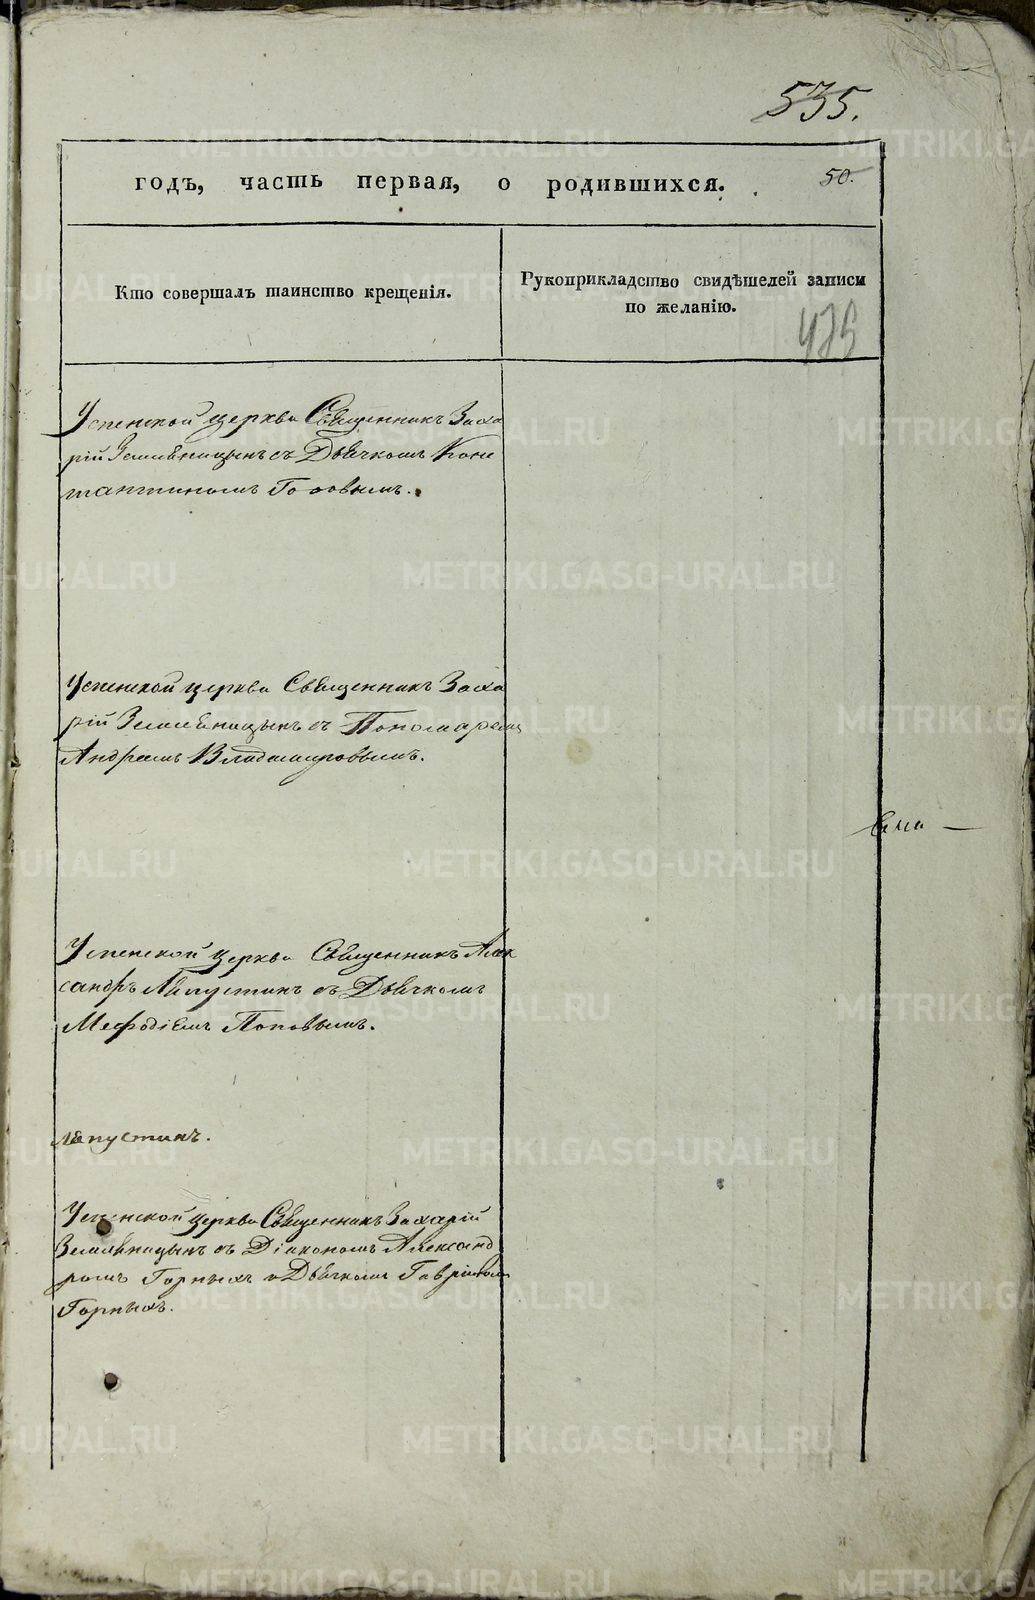 535.
годъ, часть первая, о родившихся. 50.
Кто совершалъ таинство крещенія.
Рукоприкладство свидѣтелей записи
по желанію.
Успенской церкви Священникъ Заха
рій Землѣницынъ съ Дьячкомъ Конс
тантиномъ
Успенской церкви Священникъ Заха
рій Землѣницынъ съ Пономаремъ
Андреемъ Владимировымъ.
Успенской церкви Священникъ Алек
сандръ съ Дьячкомъ
Мефодіемъ Поповымъ.
Успенской церкви Священникъ Захарій
Землѣницынъ съ Діакономъ Александ
ромъ Горныхъ и Дьячкомъ Гавріиломъ
Горныхъ.
METRIKI.GASO-URAL.RU